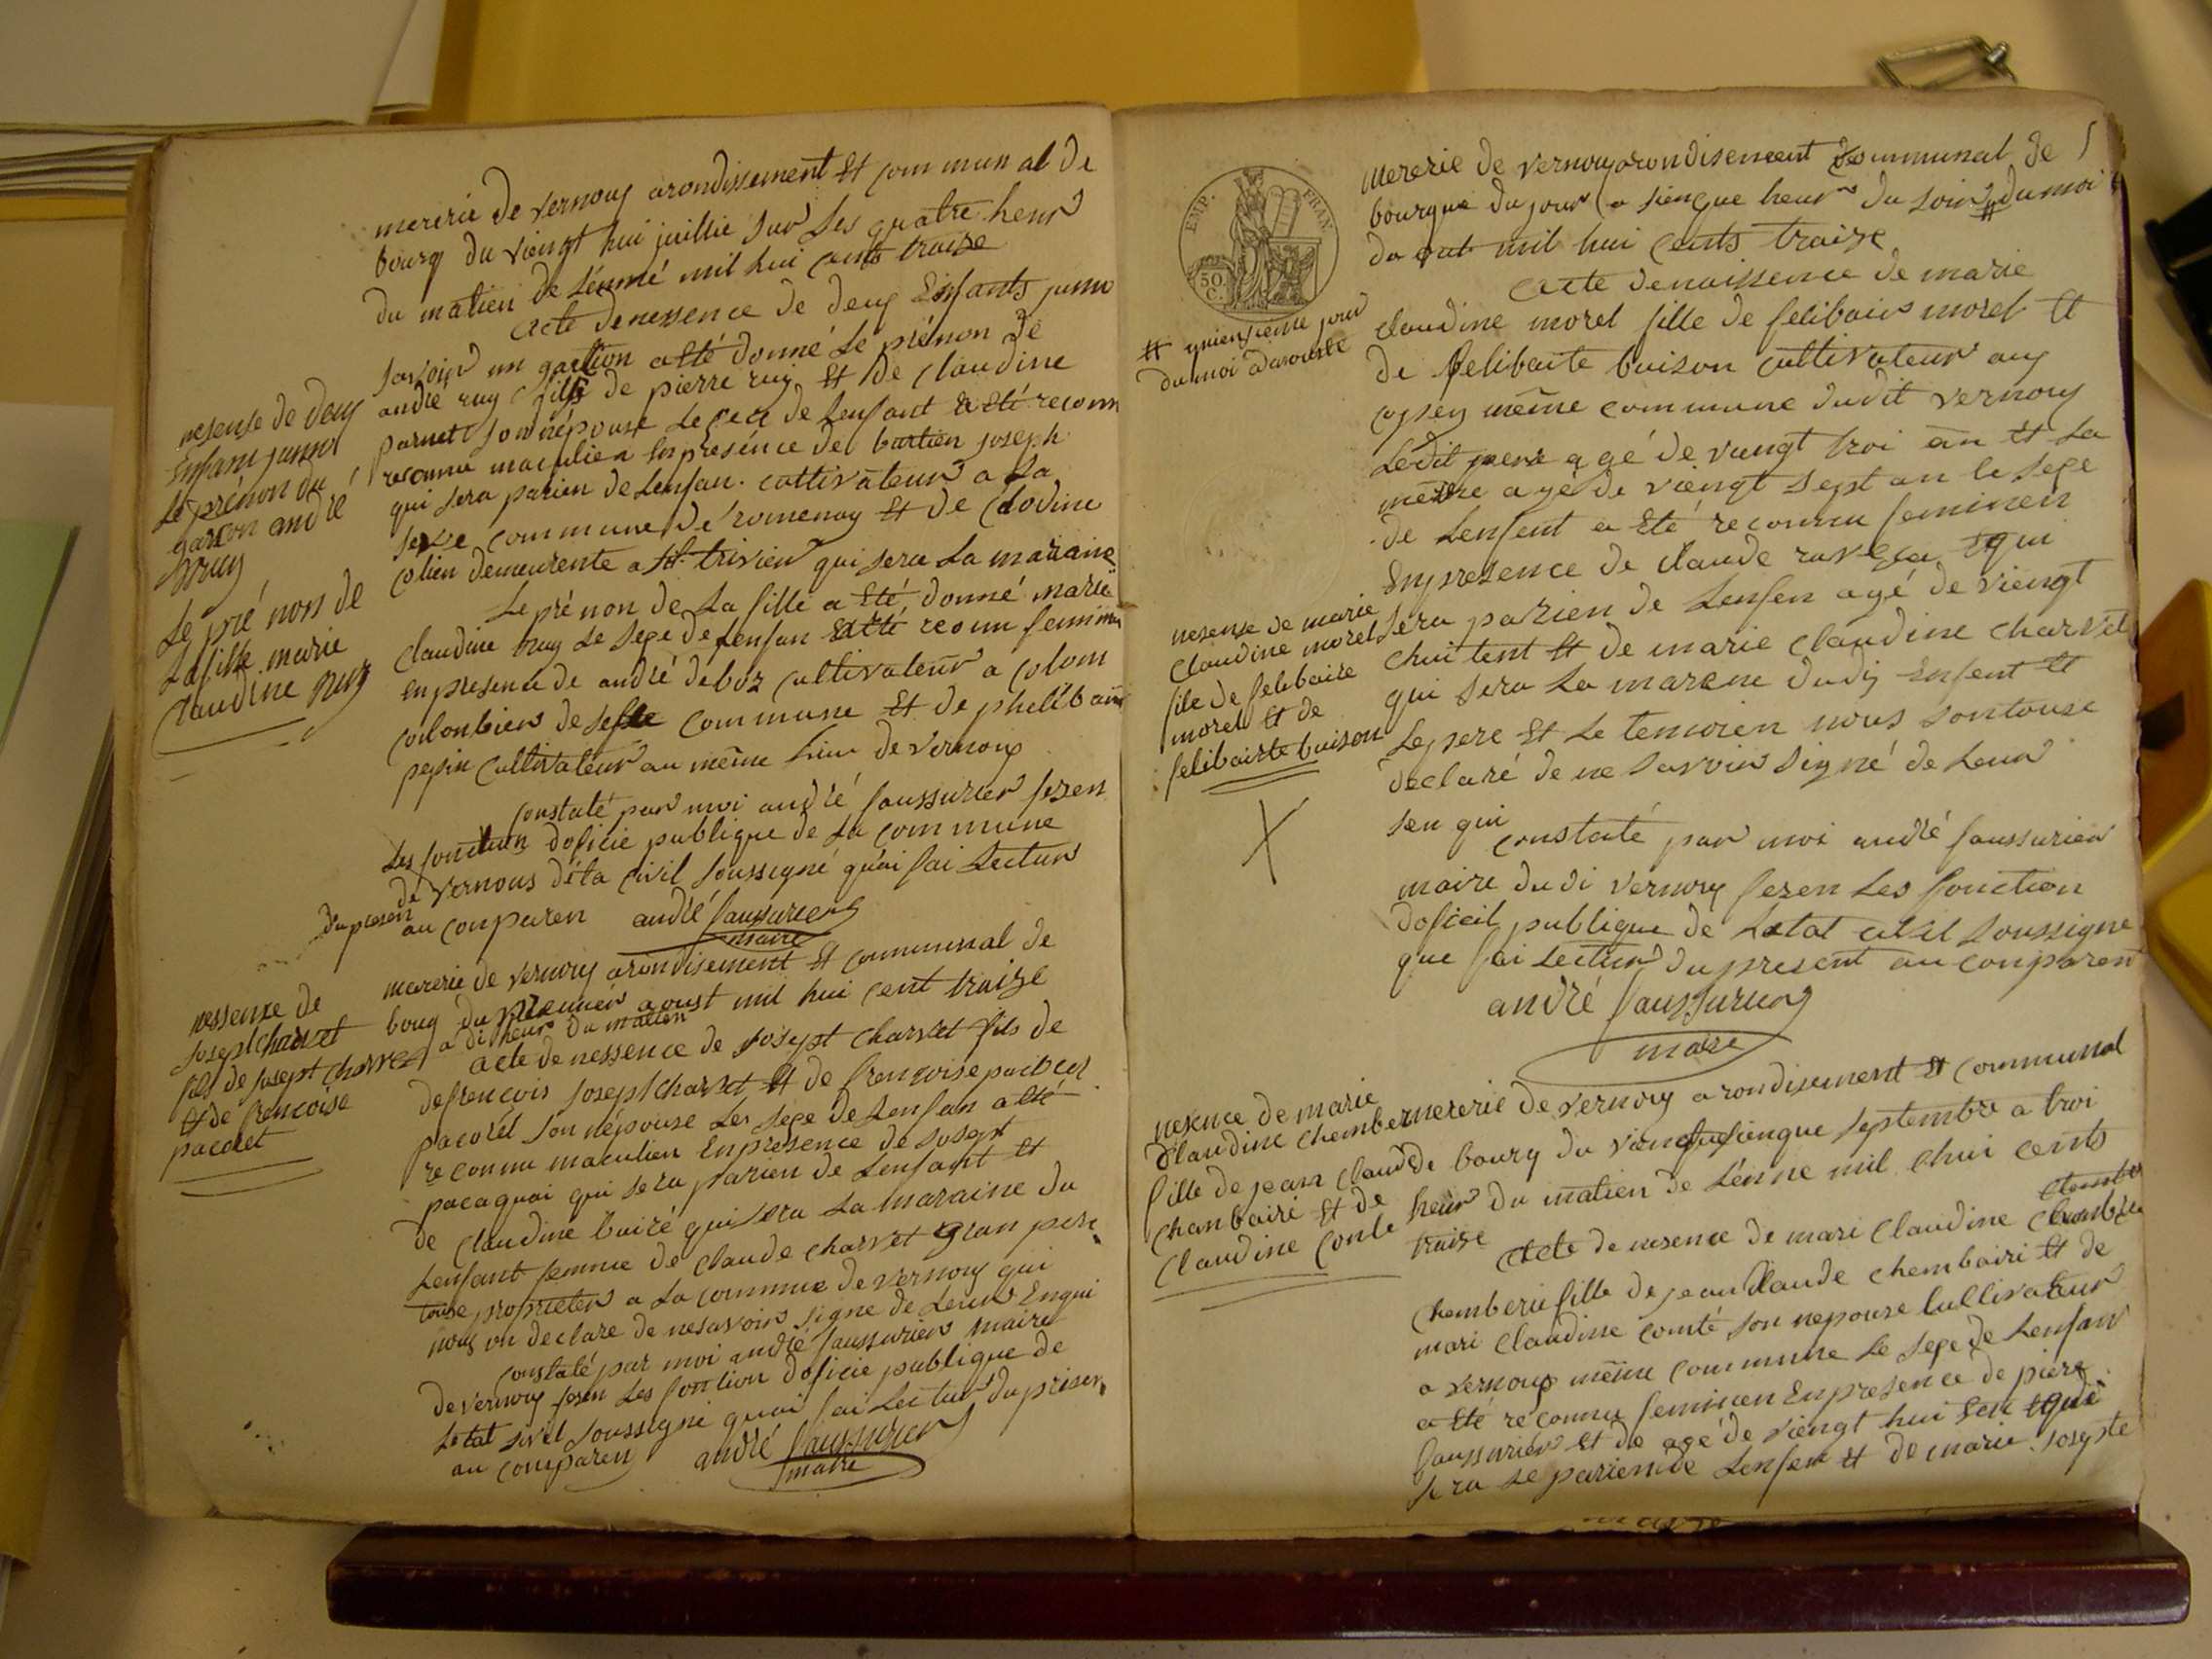 mererie de vernouy arondissement Et commun al de
bourg du viengt hui juillie sur les quatre heur
du matien de lénné mil hui cents traize
acte denessence de deuy Enfants jumo
savoir un garSon a Eté donné Le prénon de
andré ruy fils de pierre ruy Et de claudine
parnet son népouse Le cex de Lenfant a Eté reconn
reconnu maculien En presénce de bastien joseph
qui sera parien de Lenfan. cultivateur a La
commune de romenay Et de Clodine
colien demeurente a St. trivier qui sera La maraine
nesense de deuy
Enfans jumo
Le prénon du
garcon andré
ruy
Le pré non de
La fille marie
claudine ruy
Le pré non de La fille a Eté donné marie
claudine ruy Le sexe de Lenfan a Eté reconu feminin
en presence de andré deboz cultivateur a colom
colonbier de commune Et de phelibair
pepin Cultivateur au même Lieu de vernouy
constaté par moi andré faussurier fezen
Les fonction doficie publique de La commune
de vernous déta civil soussigné qu'ai fai Lecture
du presen au conparen andré faussurier
maire
nessense de
josept charvet
fils de josept charvet
Et de frencoise
pacoret
mererie de vernouy arondisement Et communal de
boug du premier aoust mil hui cent traize
a di heur du matien
acte de nessence de josept charvet fils de
defrencois josept charvet Et de frençoise
pacorét son népouse Les sexe de Lenfan a été
re connu maculien En presence de josept
pacaquoi qui sera parien de Lenfant Et
de claudine buiré qui sera La maraine du
Lenfant femme de claude charvet gran pere
touse propriéter a La commue de vernouy qui
nous on declare de nesavoir signe de Leur Enqui
constaté par moi andré faussurier maire
de vernouy fesen Les fontion doficie publique de
Letat sivil soussigné quai fai Lectur du presen
au comparen andré faussurier
maire
EMP. FRAN.
50
C.
# quiensieme jour
du moi daouste
mererie de vernouy arondisement communal de
bourque du jour a sienque heur du soir # du moi
da out mil hui cents traize
acte denaissence de marie
claudine morel fille de felibair morel Et
de felibairte buison cultivateur auy
même commune dudit vernouy
Ledit pere agé de viengt troi an Et La
mere agé de viengt sept an le sexe
de Lenfent a Eté reconnu feminein
En presence de claude qui
sera parien de Lenfen agé de viengt
chui tent Et de marie claudine charvet
qui sera La marene dudi Enfent Et
Le pere Et Le temoien nous sontouse
declaré de ne savoir signé de Leur
sen qui
constaté par moi andré faussurier
maire dudi vernouy fezen Les fonction
doficeil publique de Letat civil soussigne
que fai Lectur du present au conparen
andré faussurier
maire
nesense de marie
claudine morel
file de felibaire
morel Et de
felibairte buison
X
nesence de marie
Claudine chember
fille de jean claude
chanbairé Et de
claudine conte
mererie de vernouy arondisement Et communal
de bourg du viengt sienque septembre a troi
heur du matien de Lénne mil chui cents
traize acte de nesence de mari claudine
chemberie fille de jean claude chembairi Et de
mari claudine comté son nepouse cultivateur
a vernouy même commune Le sexe de Lenfan
a Eté reconnu feminien En presence de piere
faussurier Et de agé de viengt hui qui
sera Le parien de Lenfen Et de marie josepte